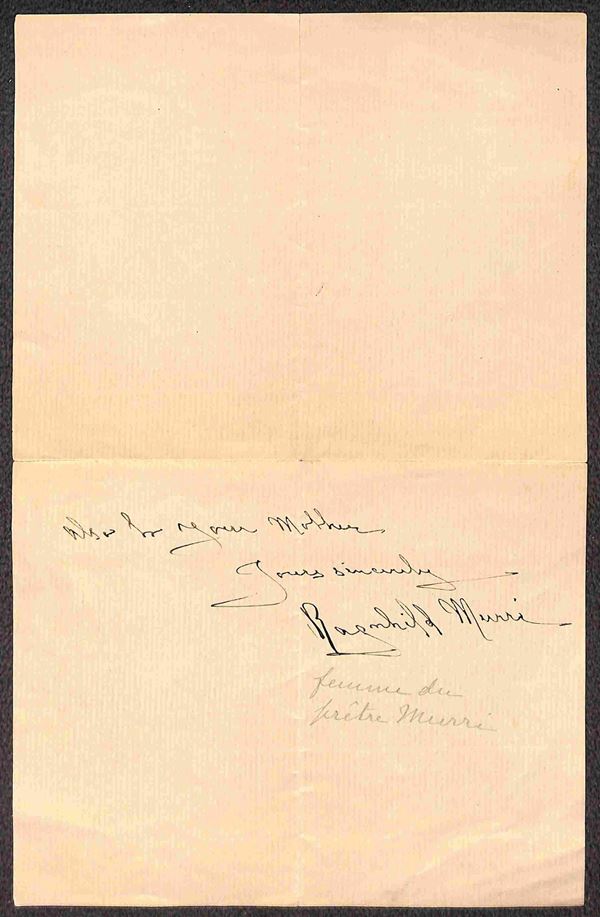 also to your Mother
Yours sincerely
Ragnhild Murri
femme du
prêtre Murri